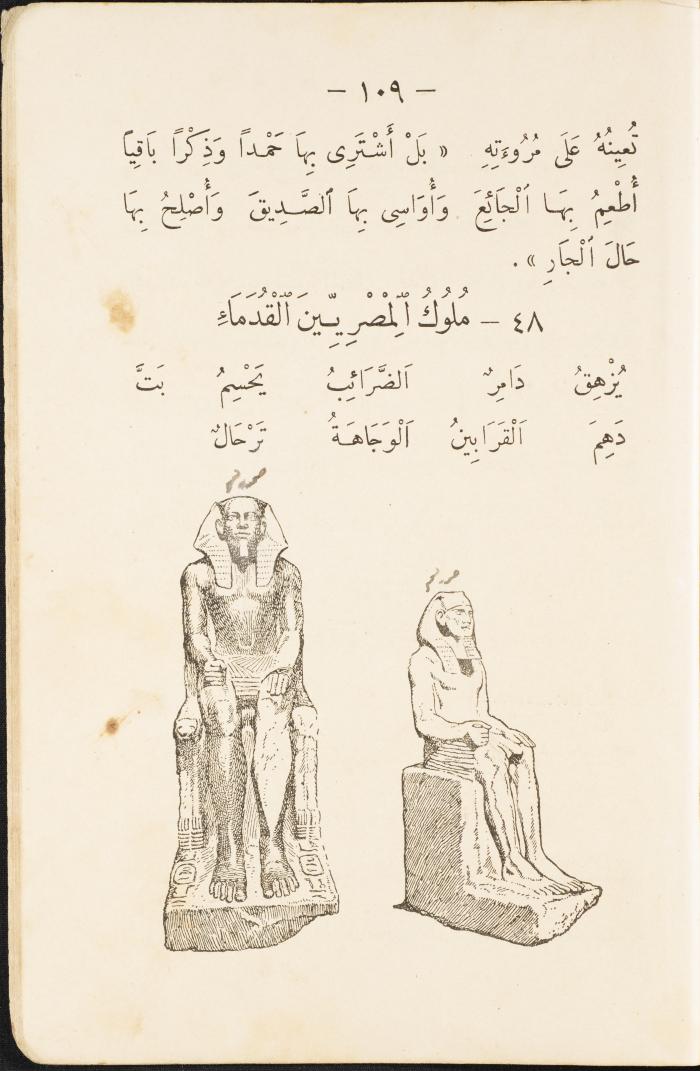 — ١٠٩ —
تُعِينُهُ عَلَى مُرُوءَتِهِ « بَلْ أَشْتَرِى بِهَا حَمْداً وَذِكْرًا بَاقِياً
أُطْعِمُ بِهَا ٱلْجَائِعَ وَأُوَاسِى بِهَا ٱلصَّدِيقَ وَأُصْلِحُ بِهَا
حَالَ ٱلْجَارِ » .
٤٨ — مُلُوكُ ٱلْمِصْرِيِّينَ ٱلْقُدَمَاءِ
يُزْهِقُ دَامِرٌ اَلضَّرَائِبُ يَحْسِمُ بَتَّ
دَهِمَ اَلْقَرَابِينُ اَلْوَجَاهَةُ تَرْحَالٌ